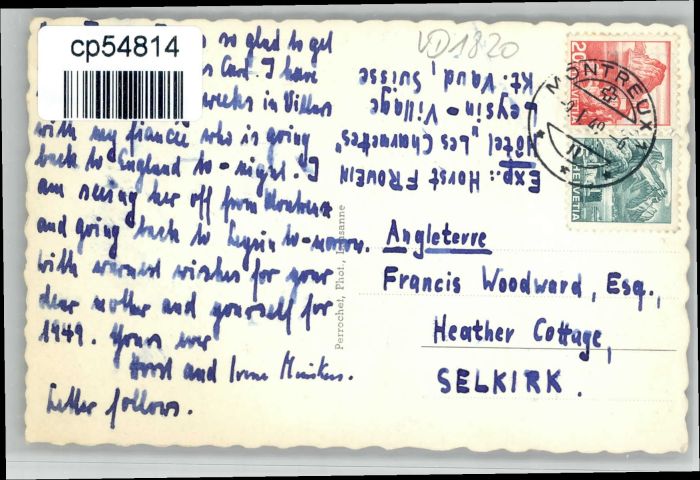 cp54814
so glad to get
Card. I have
weeks in Villars
with my fiancée who is going
back to England to-night. I
am seeing her off from Montreux
and going back to Leysin to-morrow.
With warmest wishes for your
dear mother and yourself for
1949. Yours ever
Horst and Irene
Letter follows.
Perrochet, Phot., Lausanne
VD1820
Exp.: Horst FROWEIN
Hôtel "Les Charmettes"
Leysin-Village
Kt: Vaud, Suisse
MONTREUX
20
HELVETIA
HELVETIA
Angleterre
Francis Woodward, Esq.,
Heather Cottage,
SELKIRK.